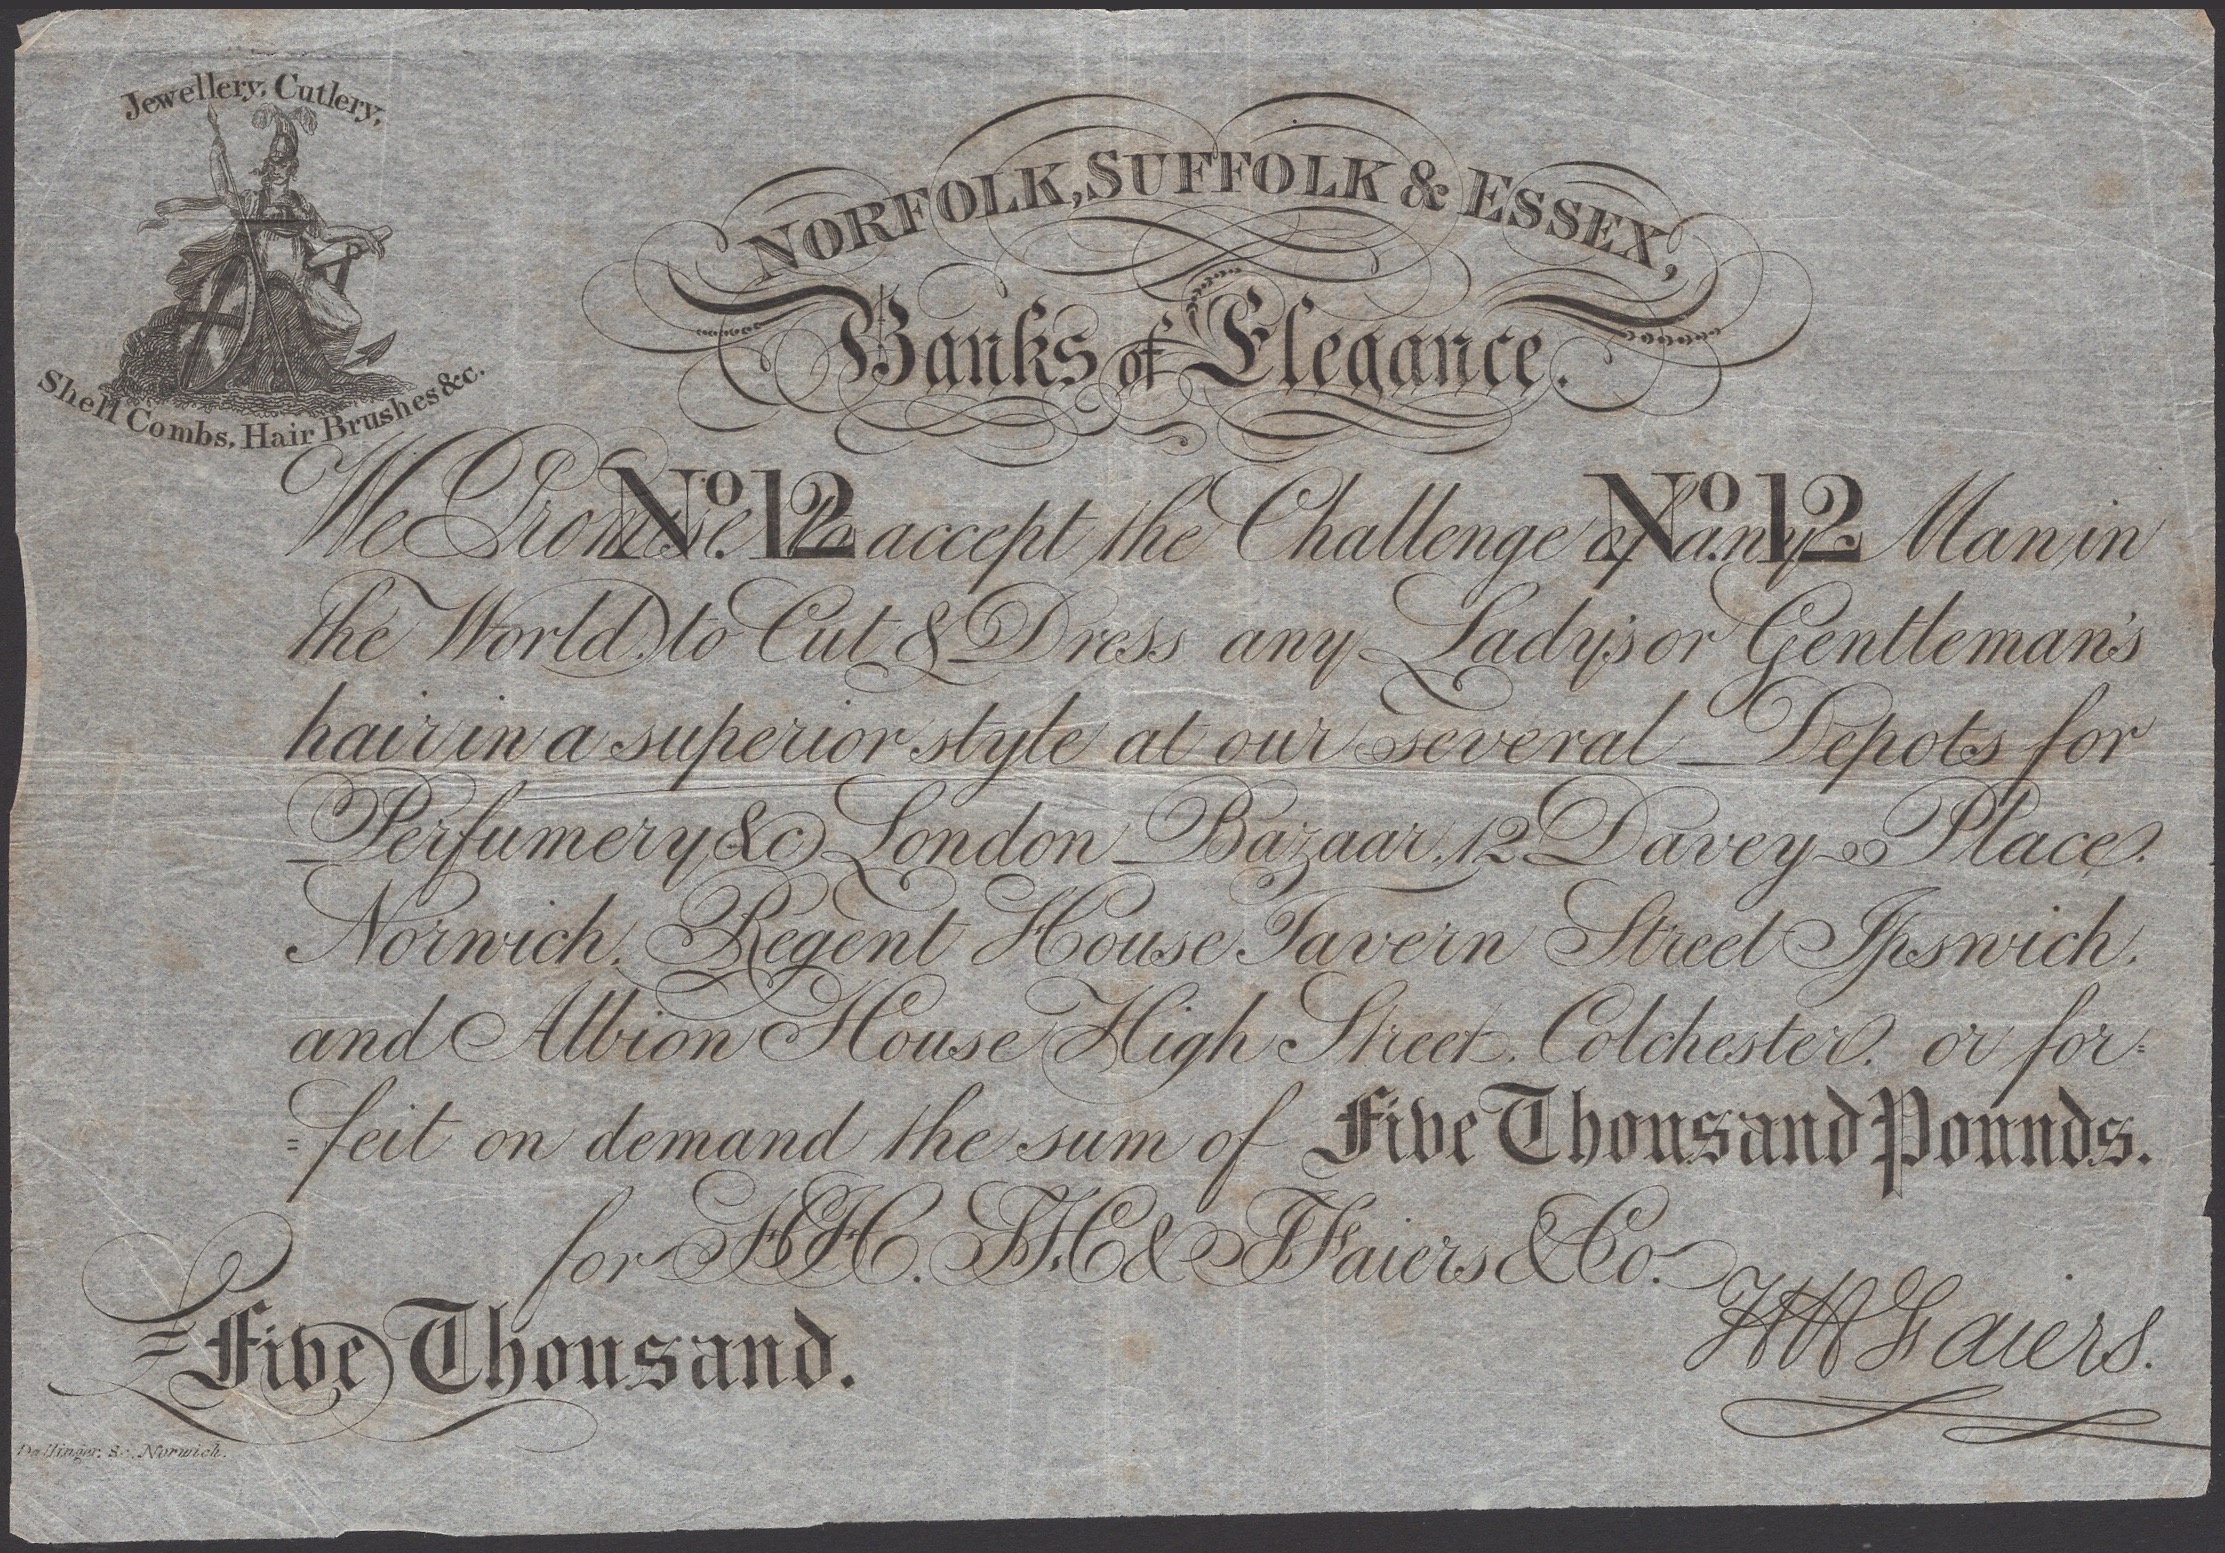 Jewellery, Cutlery,
Shell Combs, Hair Brushes &c.
NORFOLK, SUFFOLK & ESSEX,
Banks of Elegance.
No. 12 No. 12
We Promise to accept the Challenge of any Man in
the World to Cut & Dress any Lady's or Gentleman's
hair in a superior style at our several Depots for
Perfumery &c London Bazaar, 12 Davey Place.
Norwich. Regent House Tavern Street Ipswich.
and Albion House High Street. Colchester. or for=
=feit on demand the sum of Five Thousand Pounds.
for & Faiers & Co.
Five Thousand.
Faiers.
Dallinger. Sc. Norwich.